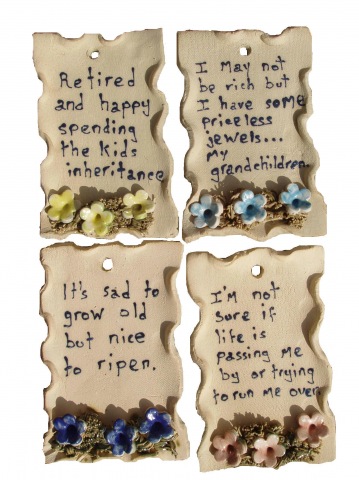 Retired
and happy
spending
the kids
inheritance
I May not
be rich but
I have some
priceless
jewels...
my
grandchildren.
It's sad to
grow old
but nice
to ripen.
I'm not
sure if
life is
passing me
by or trying
to run me over